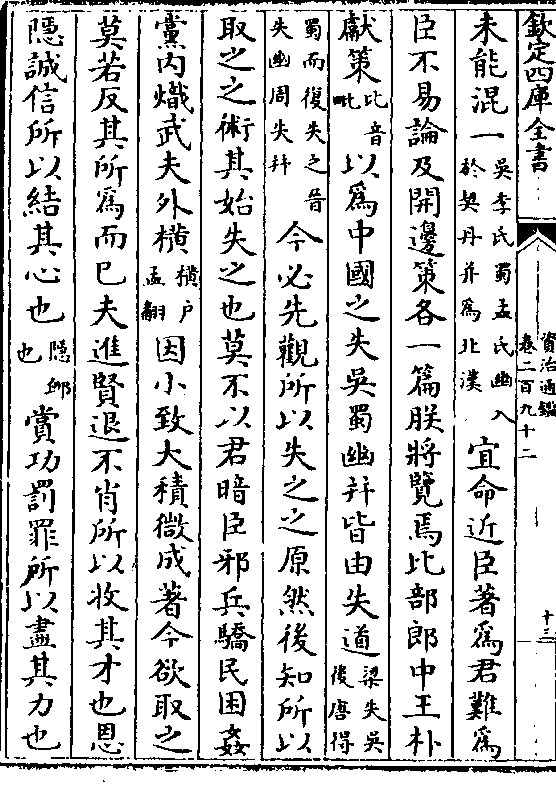 欽定四庫全書
資治通鑑
卷二百九十二
十三
未能混一吳李氏蜀孟氏幽入於契丹并為北漢宜命近臣著為君難為
臣不易論及開邊策各一篇朕將覽焉比部郎中王朴
獻策比音毗以為中國之失吳蜀幽并皆由失道梁失吳後唐得
蜀而復失之晉失幽周失并今必先觀所以失之之原然後知所以
取之之術其始失之也莫不以君暗臣邪兵驕民困姦
黨内熾武夫外橫橫户孟翻因小致大積微成著今欲取之
莫若反其所為而已夫進賢退不肖所以收其才也恩
隠誠信所以結其心也隠卹也賞功罰罪所以盡其力也